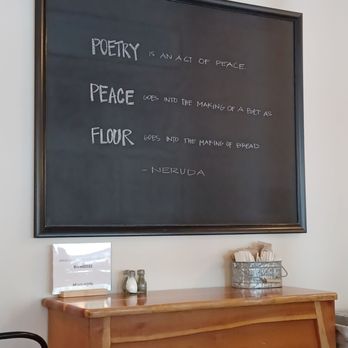 POETRY IS AN ACT OF PEACE.
PEACE GOES INTO THE MAKING OF A POET AS
FLOUR GOES INTO THE MAKING OF BREAD
- NERUDA